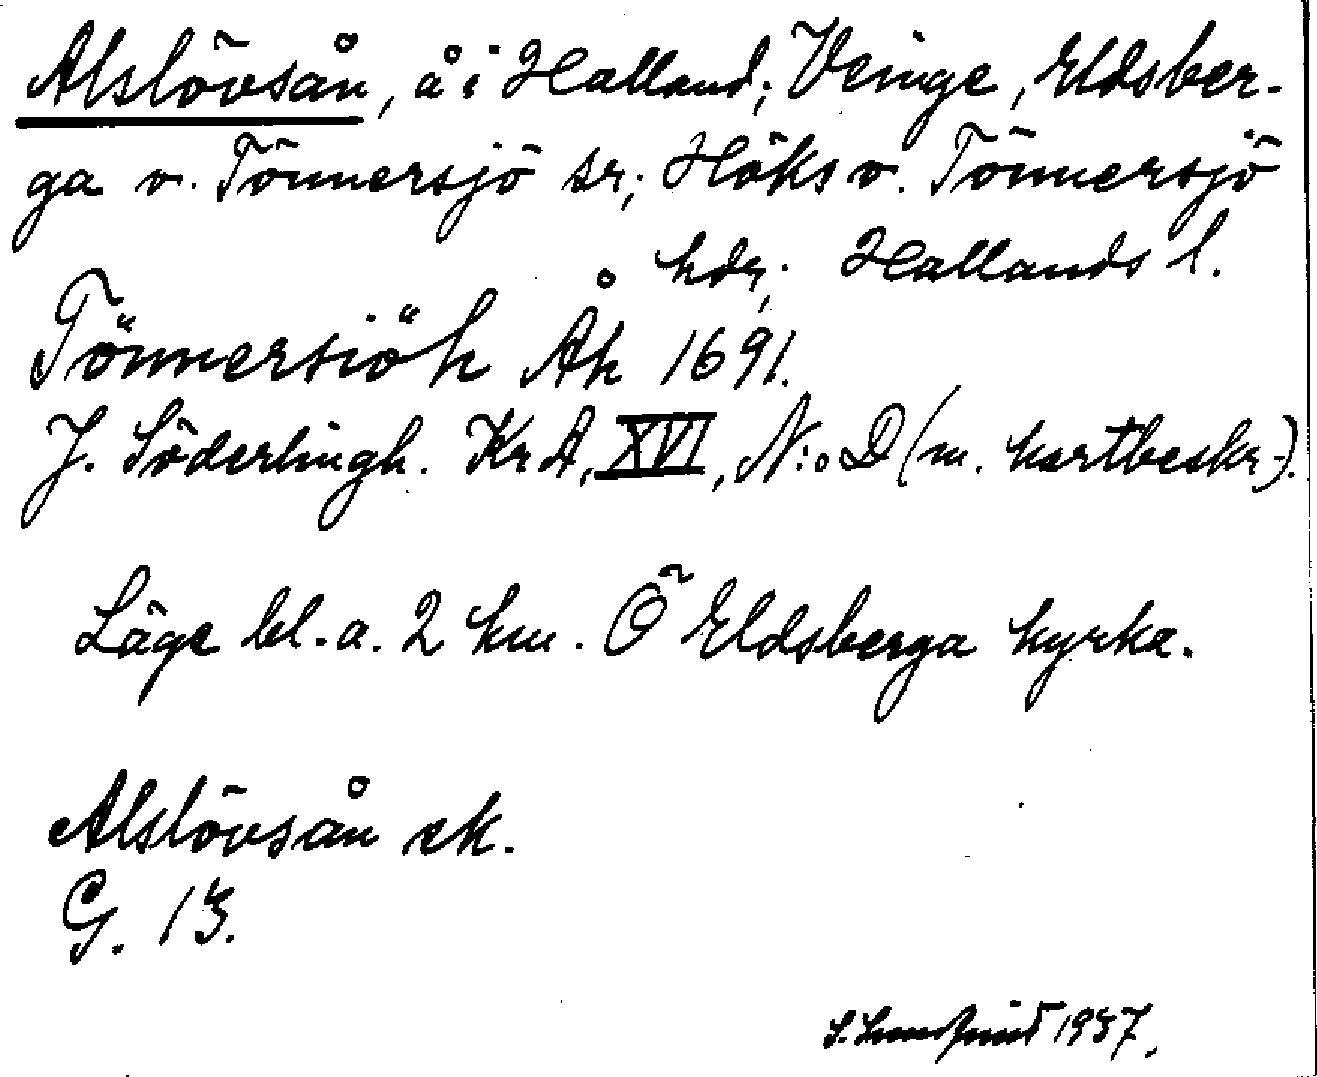 Alslövsån, å i Halland; Veinge, Eldsber-
ga o. Tönnersjö sr; Höks o. Tönnersjö
hdr; Hallands l.
Tönnersiöh Åh 1691.
J. Söderlingh. KrA, XVI, N:o D (m. kartbeskr.).
Läge bl. a. 2 km. Ö Eldsberga kyrka.
Alslövsån ek.
G. 13.
1937.